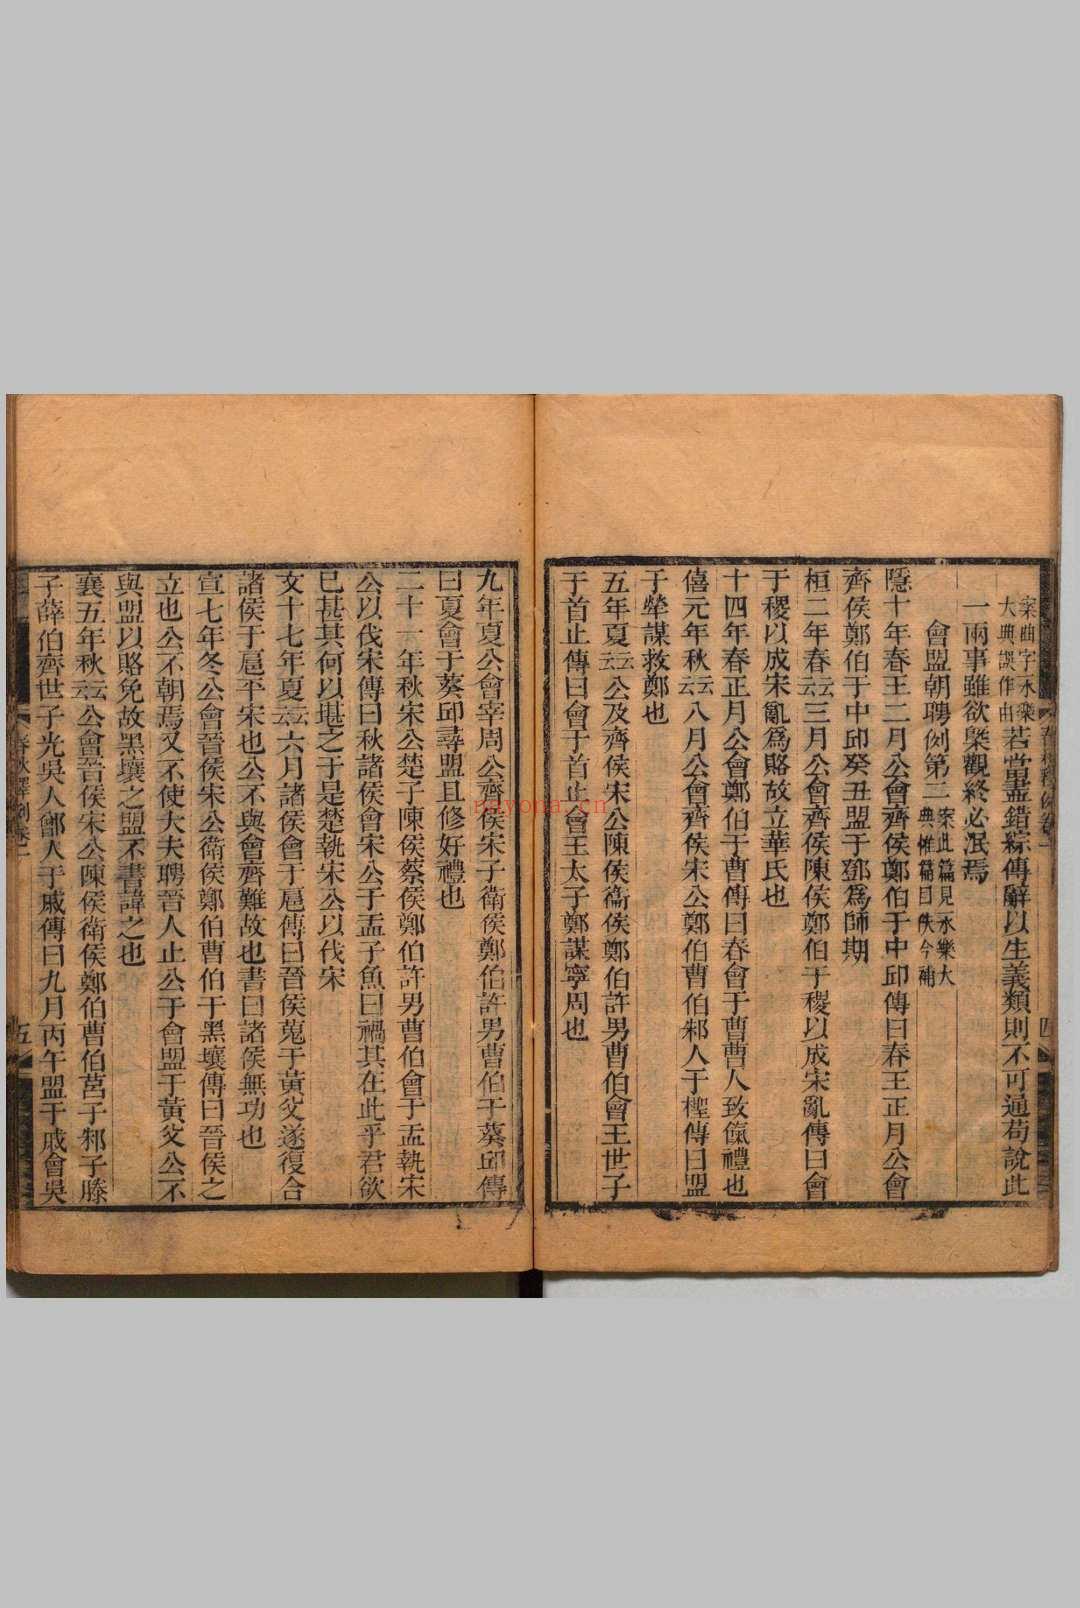 案曲字永樂大典誤作曲若當盡錯綜傳辭以生義類則不可通苟說此
一兩事雖欲槩觀終必泯焉
會盟朝聘例第二案此篇見永樂大典惟篇目佚今補
隱十年春王二月公會齊侯鄭伯于中邱傳曰春王正月公會
齊侯鄭伯于中邱癸丑盟于鄧爲師期
桓二年春云云三月公會齊侯陳侯鄭伯于稷以成宋亂傳曰會
于稷以成宋亂爲賂故立華氏也
十四年春正月公會鄭伯于曹傳曰春會于曹曹人致餼禮也
僖元年秋云云八月公會齊侯宋公鄭伯曹伯邾人于檉傳曰盟
于犖謀救鄭也
五年夏云云公及齊侯宋公陳侯衞侯鄭伯許男曹伯會王世子
于首止傳曰會于首止會王太子鄭謀寧周也
九年夏公會宰周公齊侯宋子衛侯鄭伯許男曹伯于葵邱傳
曰夏會于葵邱尋盟且修好禮也
二十一年秋宋公楚子陳侯蔡侯鄭伯許男曹伯會于盂執宋
公以伐宋傳曰秋諸侯會宋公于盂子魚曰禍其在此乎君欲
已甚其何以堪之于是楚執宋公以伐宋
文十七年夏云云六月諸侯會于扈傳曰晉侯蒐于黃父遂復合
諸侯于扈平宋也公不與會齊難故也書曰諸侯無功也
宣七年冬公會晉侯宋公衛侯鄭伯曹伯于黑壤傳曰晉侯之
立也公不朝焉又不使大夫聘晉人止公于會盟于黃父公不
與盟以賂免故黑壤之盟不書諱之也
襄五年秋云云公會晉侯宋公陳侯衛侯鄭伯曹伯莒子邾子滕
子薛伯齊世子光吳人鄫人于戚傳曰九月丙午盟于戚會吳
春秋釋例卷一
五
nayona.cn